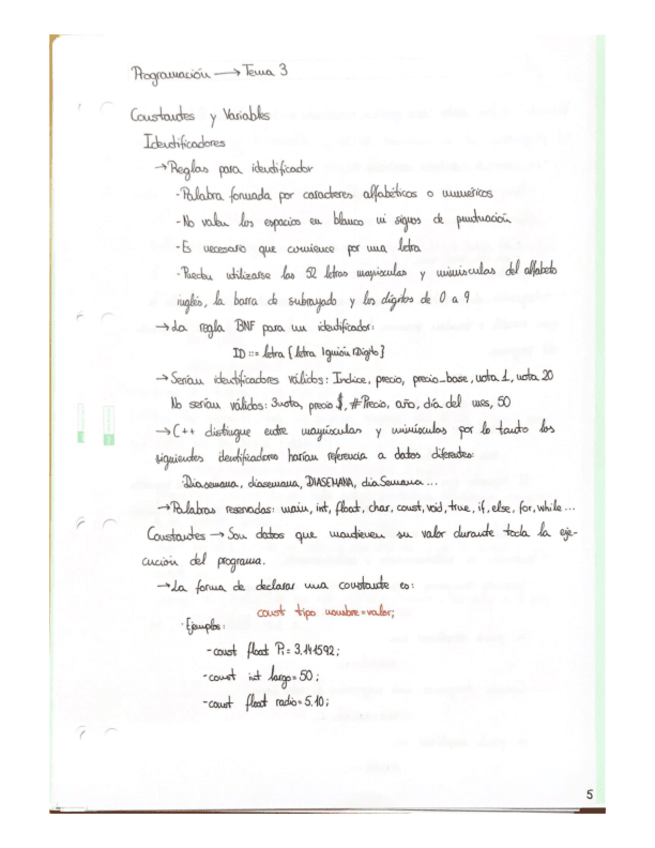 Programación → Tema 3
Constantes y Variables
Identificadores
→ Reglas para identificador
- Palabra formada por caracteres alfabéticos o numéricos
- No valen los espacios en blanco ni signos de puntuación
- Es necesario que comience por una letra
- Pueden utilizarse las 52 letras mayúsculas y minúsculas del alfabeto
inglés, la barra de subrayado y los dígitos de 0 a 9
→ La regla BNF para un identificador:
ID ::= letra {letra |guión |Dígito}
→ Serían identificadores válidos: Indice, precio, precio_base, nota 1, nota 20
No serían válidos: 3nota, precio $, #Precio, año, día del mes, 50
→ C++ distingue entre mayúsculas y minúsculas por lo tanto los
siguientes identificadores harían referencia a datos diferentes:
Diasemana, diasemana, DIASEMANA, diaSemana...
→ Palabras reservadas: main, int, float, char, const, void, true, if, else, for, while...
Constantes → Son datos que mantienen su valor durante toda la eje-
cución del programa.
→ La forma de declarar una constante es:
const tipo nombre=valor;
· Ejemplos:
- const float Pi = 3.141592;
- const int largo = 50;
- const float radio = 5.10;
5